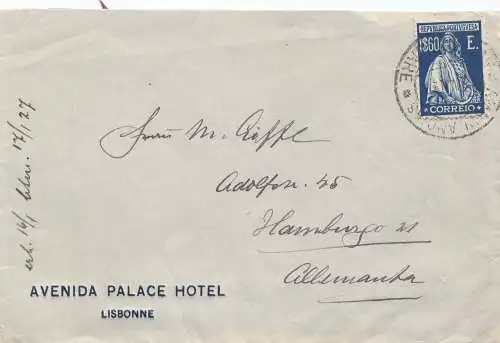 REPUBLICA PORTUGUESA
1$60 E.
CORREIO
Frau M. Eiffe
Adolfstr. 45
Hamburgo 21
Allemanha
erh. 14/1 btw. 17/1 27
AVENIDA PALACE HOTEL
LISBONNE